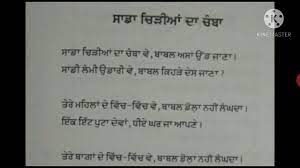 ਸਾਡਾ ਚਿੜੀਆਂ ਦਾ ਚੰਬਾ
ਸਾਡਾ ਚਿੜੀਆਂ ਦਾ ਚੰਬਾ ਵੇ, ਬਾਬਲ ਅਸਾਂ ਉੱਡ ਜਾਣਾ।
ਸਾਡੀ ਲੰਮੀ ਉਡਾਰੀ ਵੇ, ਬਾਬਲ ਕਿਹੜੇ ਦੇਸ ਜਾਣਾ?
ਤੇਰੇ ਮਹਿਲਾਂ ਦੇ ਵਿੱਚ-ਵਿੱਚ ਵੇ, ਬਾਬਲ ਡੋਲਾ ਨਹੀਂ ਲੰਘਦਾ।
ਇੱਕ ਇੱਟ ਪੁਟਾ ਦੇਵਾਂ, ਧੀਏ ਘਰ ਜਾ ਆਪਣੇ।
ਤੇਰੇ ਬਾਗਾਂ ਦੇ ਵਿੱਚ-ਵਿੱਚ ਵੇ, ਬਾਬਲ ਡੋਲਾ ਨਹੀਂ ਲੰਘਦਾ।
KINEMASTER